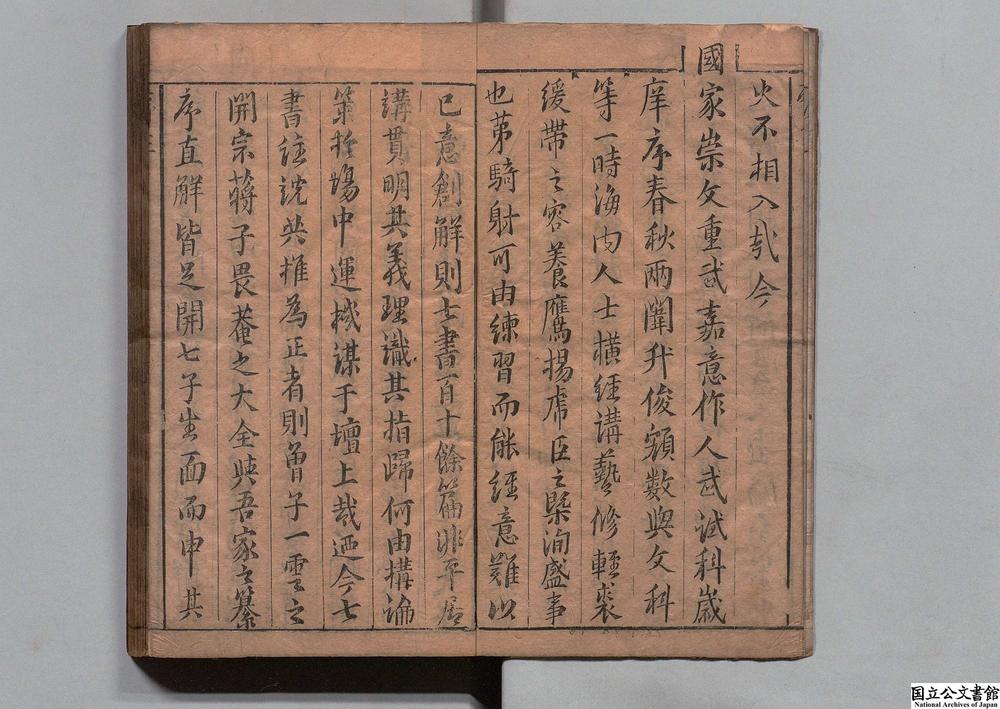 火不相入哉今
國家崇文重武嘉意作人武試科歲
庠序春秋兩闈升俊額數與文科
等一時海內人士橫經講藝修輕裘
緩帶之容養鷹揚虎臣之槩洵盛事
也苐騎射可由練習而能經意難以
已意創解則七書百十餘篇非平居
講貫明其義理識其指歸何由搆論
策於場中運機謀于壇上哉迺今七
書註說共推為正者則曾子一雲之
開宗蔣子畏菴之大全與吾家之纂
序直解皆足開七子生面而申其
国立公文書館
National Archives of Japan